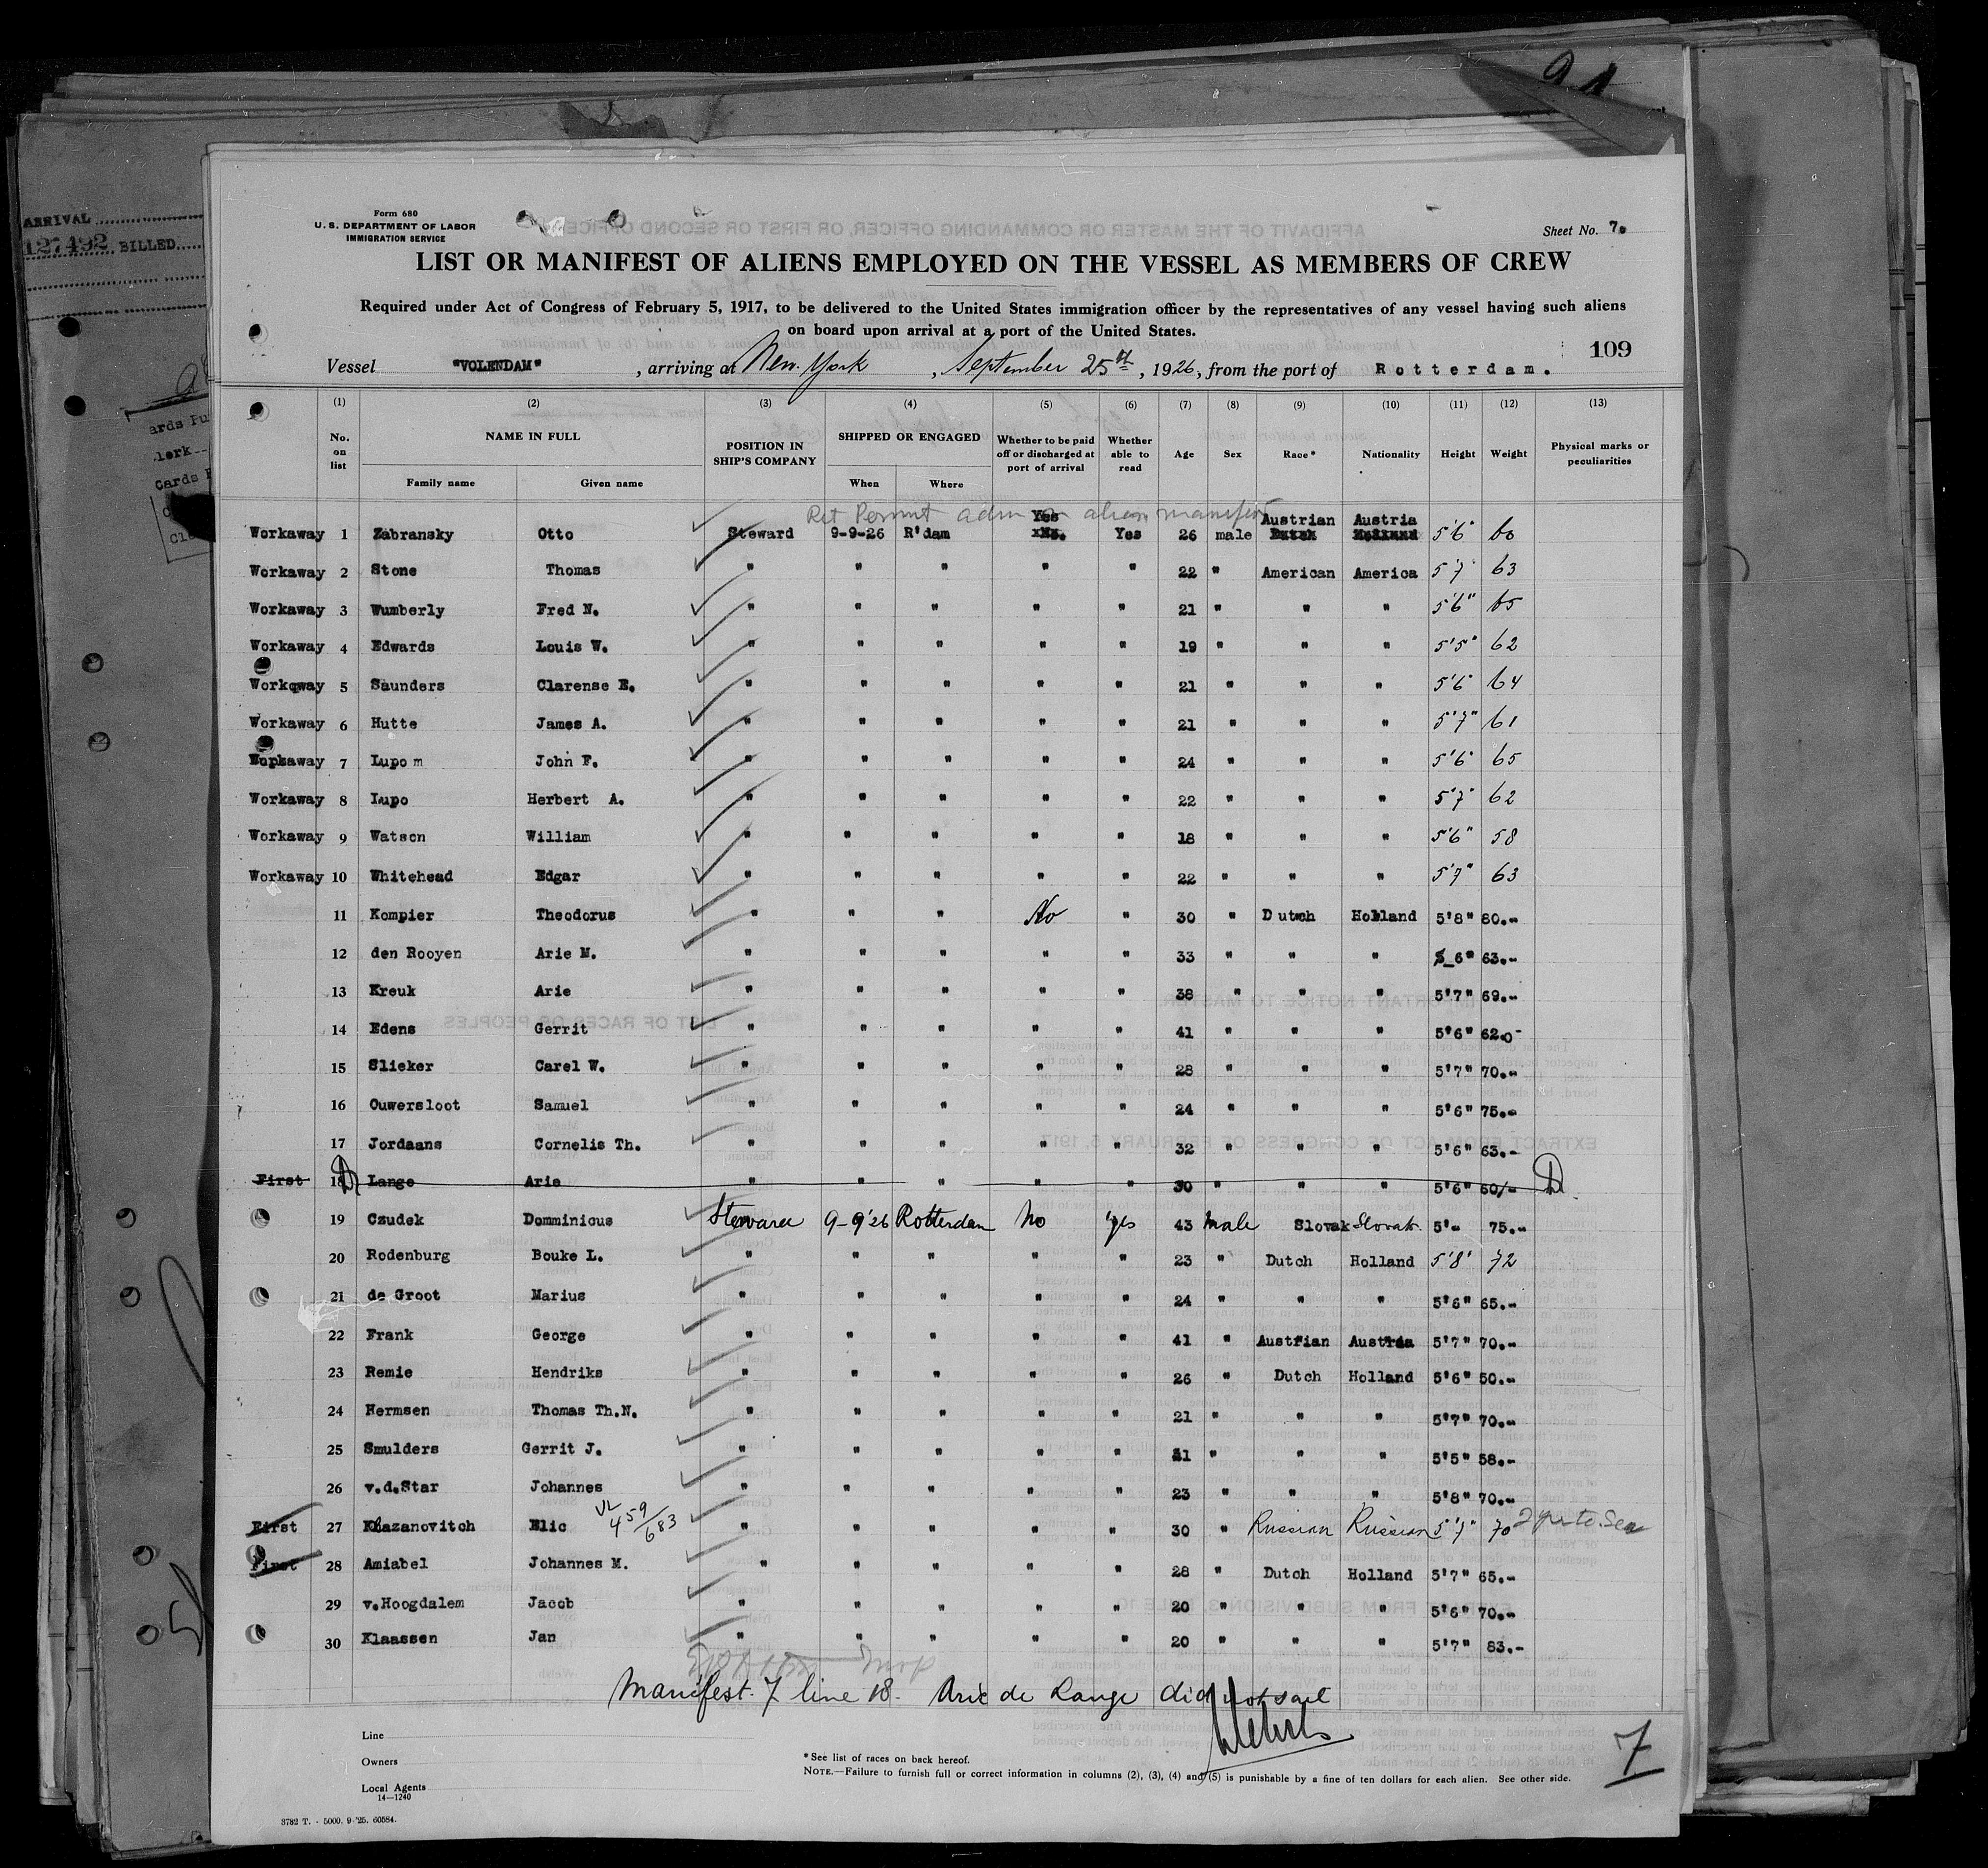 ARRIVAL
127492 BILLED
Form 680
U. S. DEPARTMENT OF LABOR
IMMIGRATION SERVICE
Sheet No. 7.
LIST OR MANIFEST OF ALIENS EMPLOYED ON THE VESSEL AS MEMBERS OF CREW
Required under Act of Congress of February 5, 1917, to be delivered to the United States immigration officer by the representatives of any vessel having such aliens
on board upon arrival at a port of the United States.
109
Vessel "VOLENDAM", arriving at New York, September 25th, 1926, from the port of Rotterdam.
(1) (2) (3) (4) (5) (6) (7) (8) (9) (10) (11) (12) (13)
No. on list NAME IN FULL POSITION IN SHIP'S COMPANY SHIPPED OR ENGAGED Whether to be paid off or discharged at port of arrival Whether able to read Age Sex Race* Nationality Height Weight Physical marks or peculiarities
Family name Given name When Where
Ret Permit adm on alien manifest
Yes Austrian Austria
Workaway 1 Zabransky Otto Steward 9-9-26 R'dam xNo. Yes 26 male Dutch Holland 5'6" 60
Workaway 2 Stone Thomas " " " " " 22 " American America 5'7" 63
Workaway 3 Wumberly Fred N. " " " " " 21 " " " 5'6" 65
Workaway 4 Edwards Louis W. " " " " " 19 " " " 5'5" 62
Workqway 5 Saunders Clarense E. " " " " " 21 " " " 5'6" 64
Workaway 6 Hutte James A. " " " " " 21 " " " 5'7" 61
7 Lupo m John F. " " " " " 24 " " " 5'6" 65
Workaway 8 Lupo Herbert A. " " " " " 22 " " " 5'7" 62
Workaway 9 Watson William " " " " " 18 " " " 5'6" 58
Workaway 10 Whitehead Edgar " " " " " 22 " " " 5'7" 63
11 Kompier Theodorus " " " No " 30 " Dutch Holland 5'8" 80.-
12 den Rooyen Arie M. " " " " " 33 " " " 5_6" 63.-
13 Kreuk Arie " " " " " 38 " " " 5'7" 69.-
14 Edens Gerrit " " " " " 41 " " " 5'6" 62.0-
15 Slieker Carel W. " " " " " 28 " " " 5'7" 70.-
16 Ouwersloot Samuel " " " " " 24 " " " 5'6" 75.-
17 Jordaans Cornelis Th. " " " " " 32 " " " 5'6" 63.-
First 18 D Lange Arie " " " " " 30 " " " 5'6" 60/- D
19 Czudek Domminicus Steward 9-9'26 Rotterdam No Yes 43 Male Slovak Slovak 5'- 75.-
20 Rodenburg Bouke L. " " " " " 23 " Dutch Holland 5'8" 72
21 de Groot Marius " " " " " 24 " " " 5'6" 65.-
22 Frank George " " " " " 41 " Austrian Austria 5'7" 70.-
23 Remie Hendriks " " " " " 26 " Dutch Holland 5'6" 50.-
24 Hermsen Thomas Th.N. " " " " " 21 " " " 5'7" 70.-
25 Smulders Gerrit J. " " " " " 21 " " " 5'5" 58.-
26 v.d.Star Johannes " " " " " 23 " " " 5'8" 70.-
First 27 Khazanovitch Elic 459/683 " " " " " 30 " Russian Russian 5'7" 70 2 yrs to Sea
First 28 Amiabel Johannes M. " " " " " 28 " Dutch Holland 5'7" 65.-
29 v.Hoogdalem Jacob " " " " " 20 " " " 5'6" 70.-
30 Klaassen Jan " " " " " 20 " " " 5'7" 83.-
Manifest 7 line 18. Arie de Lange did not sail
Line
Owners
Local Agents
14—1240
* See list of races on back hereof.
NOTE.—Failure to furnish full or correct information in columns (2), (3), (4) and (5) is punishable by a fine of ten dollars for each alien. See other side.
7
3782 T. - 5000. 9-'25. 60584.